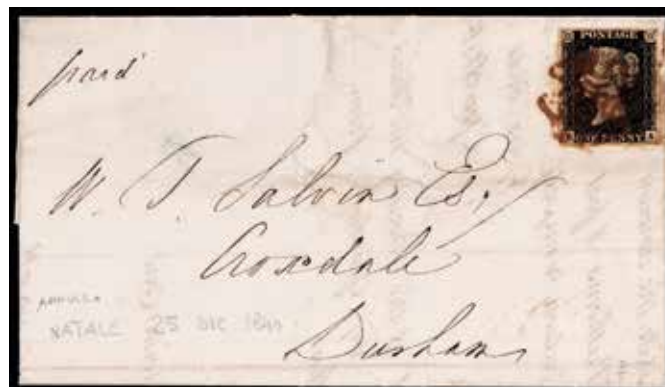 POSTAGE
ONE PENNY
paid
W. T. Salvin Esq.
Croxdale
Durham
ANNULLO
NATALE 25 DIC 1840